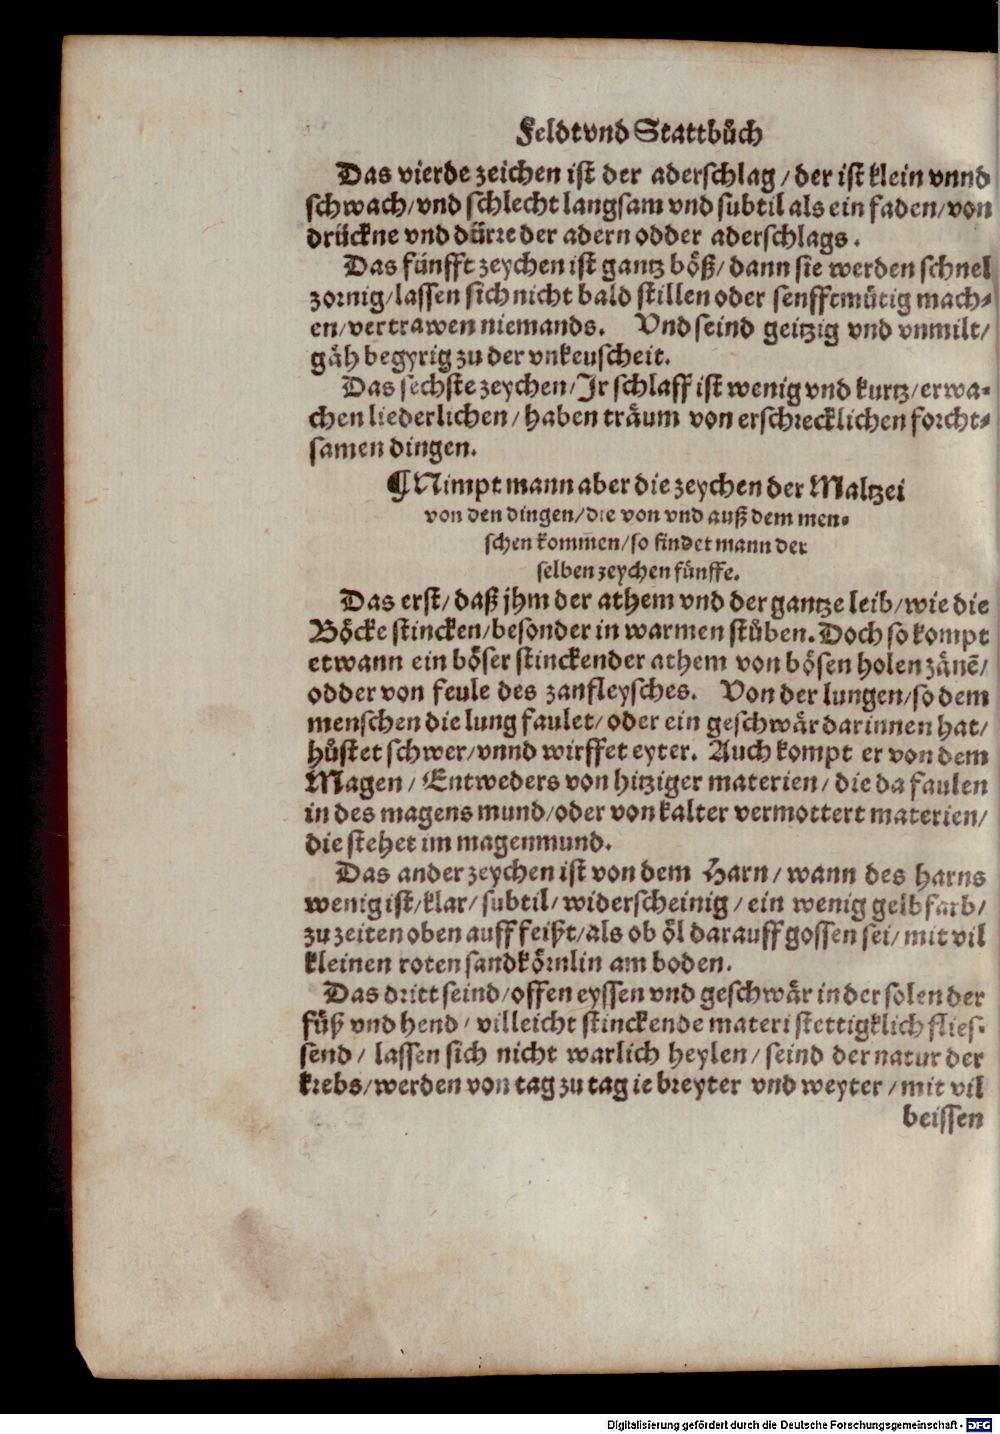 Feldt vnd Stattbůch
Das vierde zeichen ist der aderschlag / der ist klein vnnd
schwach/vnd schlecht langsam vnd subtil als ein faden/von
drückne vnd dürre der adern odder aderschlags.
Das fünfft zeychen ist gantz böß/dann sie werden schnel
zornig/lassen sich nicht bald stillen oder senfftmütig mach⸗
en/vertrawen niemands. Vnd seind geitzig vnd vnmilt/
gäh begyrig zu der vnkeuscheit.
Das sechste zeychen/Jr schlaff ist wenig vnd kurtz/erwa⸗
chen liederlichen/haben träum von erschrecklichen forcht⸗
samen dingen.
¶ Nimpt mann aber die zeychen der Maltzei
von den dingen/die von vnd auß dem men⸗
schen kom̃en/so findet mann der
selben zeychen fünffe.
Das erst/daß jhm der athem vnd der gantze leib/wie die
Böcke stincken/besonder in warmen stůben. Doch so kompt
etwann ein böser stinckender athem von bösen holen zänẽ/
odder von feule des zanfleysches. Von der lungen/so dem
menschen die lung faulet/oder ein geschwär darinnen hat/
hůstet schwer/vnnd wirffet eyter. Auch kompt er von dem
Magen / Entweders von hitziger materien/die da faulen
in des magens mund/oder von kalter vermottert materien/
die stehet im magenmund.
Das ander zeychen ist von dem Harn/wann des harns
wenig ist/klar/subtil/widerscheinig/ein wenig gelbfarb/
zu zeiten oben auff feißt/als ob öl darauff gossen sei/mit vil
kleinen roten sandkörnlin am boden.
Das dritt seind/offen eyssen vnd geschwär in der solen der
füß vnd hend/villeicht stinckende materi stettigklich flies⸗
send/lassen sich nicht warlich heylen/seind der natur der
krebs/werden von tag zu tag ie breyter vnd weyter/mit vil
beissen
Digitalisierung gefördert durch die Deutsche Forschungsgemeinschaft - DFG